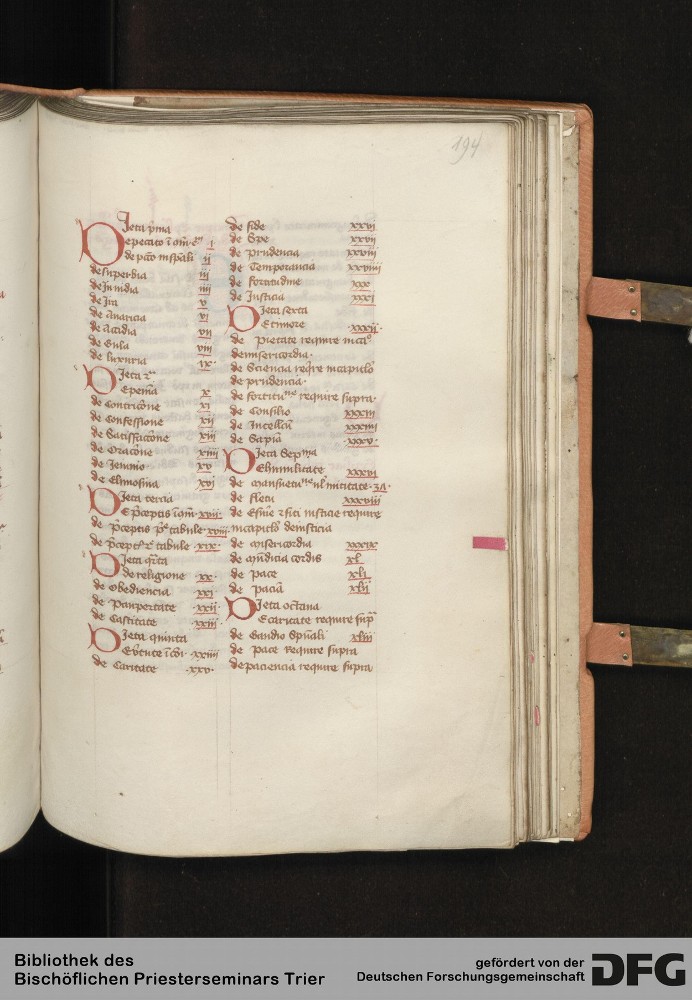 194
Dieta pͥma
De peccato ī om̄i ꝯ i
de pctō in sp̄ali ii
de superbia iii
de Inuidia iiii
de Ira v
de Auaricia vi
de Accidia vii
de Gula viii
de luxuria ix
Dieta 2ᵃ
De penīa x
de Contricōne xi
de Confessione xii
de Satisfaccōne xiii
de Oracōne xiiii
de Jeiunio xv
de Elimosina xvi
Dieta tercia
De p̄ceptis ī om̄i xvii
de p̄ceptis pᵉ tabule xviii
de p̄cept 2ᵉ tabule xix
Dieta qͣrta
De religione xx
de Obediencia xxi
de Paupertate xxii
de Castitate xxiii
Dieta quinta
De v̄tute ī cōi xxiiii
de Caritate xxv
de fide xxvi
de Spe xxvii
de prudencia xxviii
de Temporancia xxviiii
de fortitudine xxx
de Iusticia xxxi
Dieta sexta
De timore xxxii
de Pietate require in caº
de misericordia
de Sciencia reqͥre in capitulo
de prudencia
de fortituⁿᵉ require supra
de Consilio xxxiii
de Intellcū xxxiiii
de Sapīa xxxv
Dieta Sepᵐᵃ
De humilitate xxxvi
de mansuetuⁿᵉ ul mititate 37
de fletu xxxviii
de Esurie ⁊ siti iusticie require
in capitulo de iusticia
de misericordia xxxix
de mūdicia cordis xl
de pace xli
de pacīa xlii
Dieta octaua
De caritate require supͣ
de Gaudio Spūali xliii
de Pace Require supra
de paciencia require supra
Bibliothek des
Bischöflichen Priesterseminars Trier
gefördert von der
Deutschen Forschungsgemeinschaft
DFG